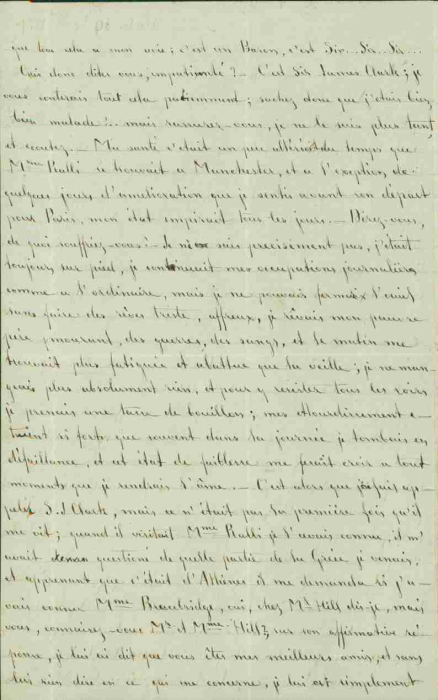 que tout cela a mon avis; c'est un Baron, c'est Sir... Sir... Sir...
Qui donc dites vous, impatienté? — C'est Sir James Clark; je
vous conterais tout cela patiemment; sachez donc que j'étais bien
bien malade!.. mais rassurez-vous, je ne le suis plus tant,
et écoutez. — Ma santé s'était un peu altérée du temps que
Mme Ralli se trouvait a Manchester, et a l'exception de
quelques jours d'amélioration que je sentis avant son départ
pour Paris, mon état empirait tous les jours. — Direz-vous,
de quoi souffriez-vous? — Je ne sais precisément pas, j'étais
toujours sur pied, je continuait mes occupations journalières
comme a l'ordinaire, mais je ne pouvais fermer l'œuil
sans faire des rêves triste, affreux, je rêvais mon pauvre
père mourant, des guerres, des sangs, et le matin me
trouvait plus fatiguée et abattue que la veille; je ne man-
geais plus absolument rien, et pour y resister tous les soirs
je prenais une tasse de bouillon; mes étourdirement é-
taient si forts que souvent dans la journée je tombais en
défaillance, et cet état de faiblesse me ferait croir a tout
moments que je rendrais l'âme. — C'est alors que je fais ap-
peler S. J. Clark, mais ce n'était pas la première fois qu'il
me vit; quand il visitait Mme Ralli je l'avais connu, il m'
avait questioné de quelle partie de la Grèce je venais,
et apprenant que c'était d'Athènes il me demanda si j'a-
vais connu Mme Bracebridge, oui, chez Mr Hill dis-je, mais
vous, connaissez-vous Mr et Mme Hill? sur son affirmative ré-
ponse, je lui ai dit que vous êtes mes meilleurs amis, et sans
lui rien dire en ce qui me concerne, je lui ai simplement